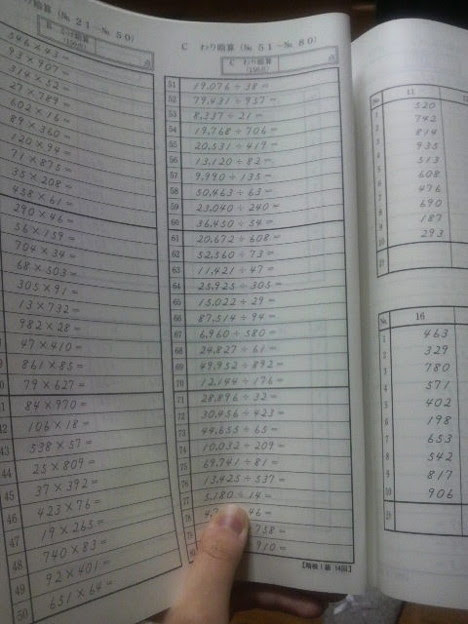 け暗算 (№21〜№50)
546×43=
93×907=
314×52=
27×789=
602×16=
89×360=
120×94=
71×875=
35×208=
458×61=
290×46=
56×159=
704×34=
68×503=
305×91=
13×732=
982×28=
47×410=
861×85=
79×627=
84×970=
42 106×18=
43 538×57=
44 25×809=
45 37×392=
46 423×76=
47 19×265=
48 740×83=
49 92×401=
50 651×64=
C わり暗算 (№51〜№80)
C わり暗算
51 19,076÷38=
52 79,431÷937=
53 8,337÷21=
54 19,768÷706=
55 20,531÷419=
56 13,120÷82=
57 9,990÷135=
58 50,463÷63=
59 23,040÷240=
60 36,450÷54=
61 20,672÷608=
62 52,560÷73=
63 11,421÷47=
64 25,925÷305=
65 15,022÷29=
66 87,514÷94=
67 6,960÷580=
68 24,827÷61=
69 49,952÷892=
70 12,144÷176=
71 28,896÷32=
72 30,456÷423=
73 44,655÷65=
74 10,032÷209=
75 69,741÷81=
76 13,425÷537=
77 5,180÷14=
78 46=
79 738=
910=
№ 11
1 520
2 742
3 814
4 935
5 513
6 608
7 476
8 690
9 187
10 293
計
№ 16
1 463
2 329
3 780
4 571
5 402
6 198
7 653
8 542
9 817
10 906
計